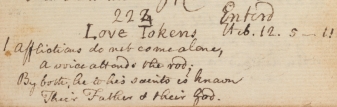 224 Enterd
Love Tokens Feb. 12. 5-11
1 Afflictions do not come alone,
A voice attends the rod;
By both, he to his saints is known
Their Father & their God.